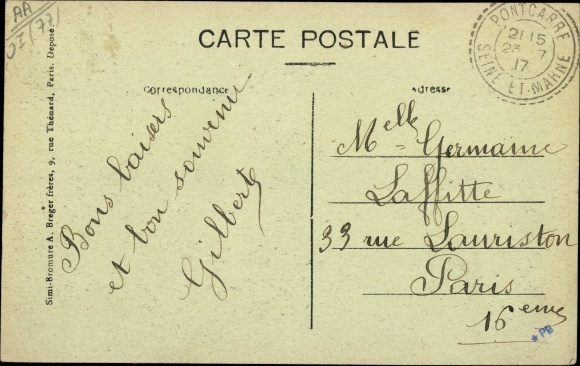 AA
CARTE POSTALE
PONTCARRÉ
21 15
23 7
17
SEINE-ET-MARNE
Correspondance
Adresse
Bons baisers
et bon souvenir
Gilbert
Melle Germaine
Laffitte
33 rue Lauriston
Paris
16eme
PB
Simi-Bromure A. Breger frères, 9, rue Thénard, Paris. Déposé.